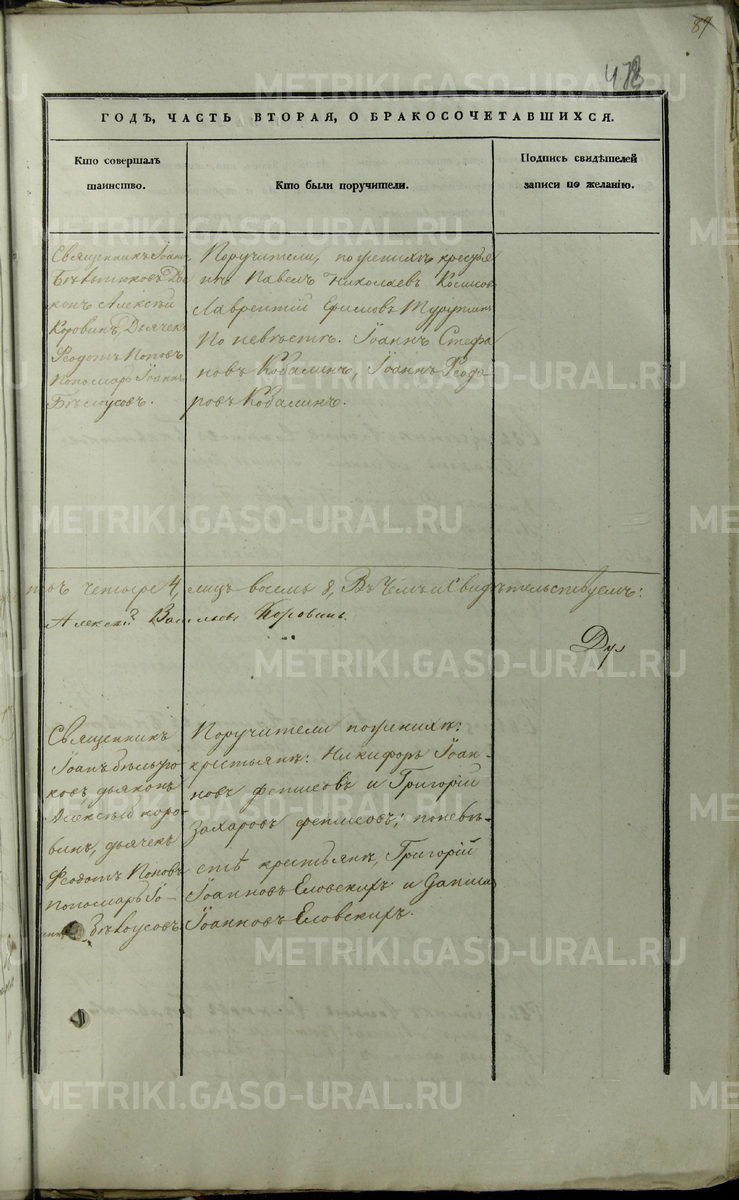 87
478
ГОДЪ, ЧАСТЬ ВТОРАЯ, О БРАКОСОЧЕТАВШИХСЯ.
Кто совершалъ
таинство.
Кто были поручители.
Подпись свидѣтелей
записи по желанію.
Священникъ Іоаннъ
Діаконъ Алексѣй
Коровинъ, Дьячекъ
Ѳеодотъ Поповъ
Пономарь Іоаннъ
Бѣлоусовъ.
Поручители, по женихѣ крестья
не Павелъ Николаевъ
Лаврентій Ефимовъ
По невѣстѣ. Іоаннъ Стефа
новъ Кобалинъ, Іоаннъ Ѳеодо
ровъ Кобалинъ.
четыре 4, лицъ восемь 8, Въ чемъ и свидѣтельствуемъ:
Алексѣй Васильевъ Коровинъ.
Ду
Священникъ
Іоаннъ
ковъ дьяконъ
Алексѣй Коро-
винъ, дьячекъ
Ѳеодотъ Поповъ
пономарь Іо-
аннъ Бѣлоусовъ
Поручители по женихѣ:
крестьяне: Никифоръ Іоан-
новъ и Григорій
Захаровъ по невѣ-
стѣ крестьяне, Григорій
Іоанновъ Еловскихъ и Данила
Іоанновъ Еловскихъ.
METRIKI.GASO-URAL.RU